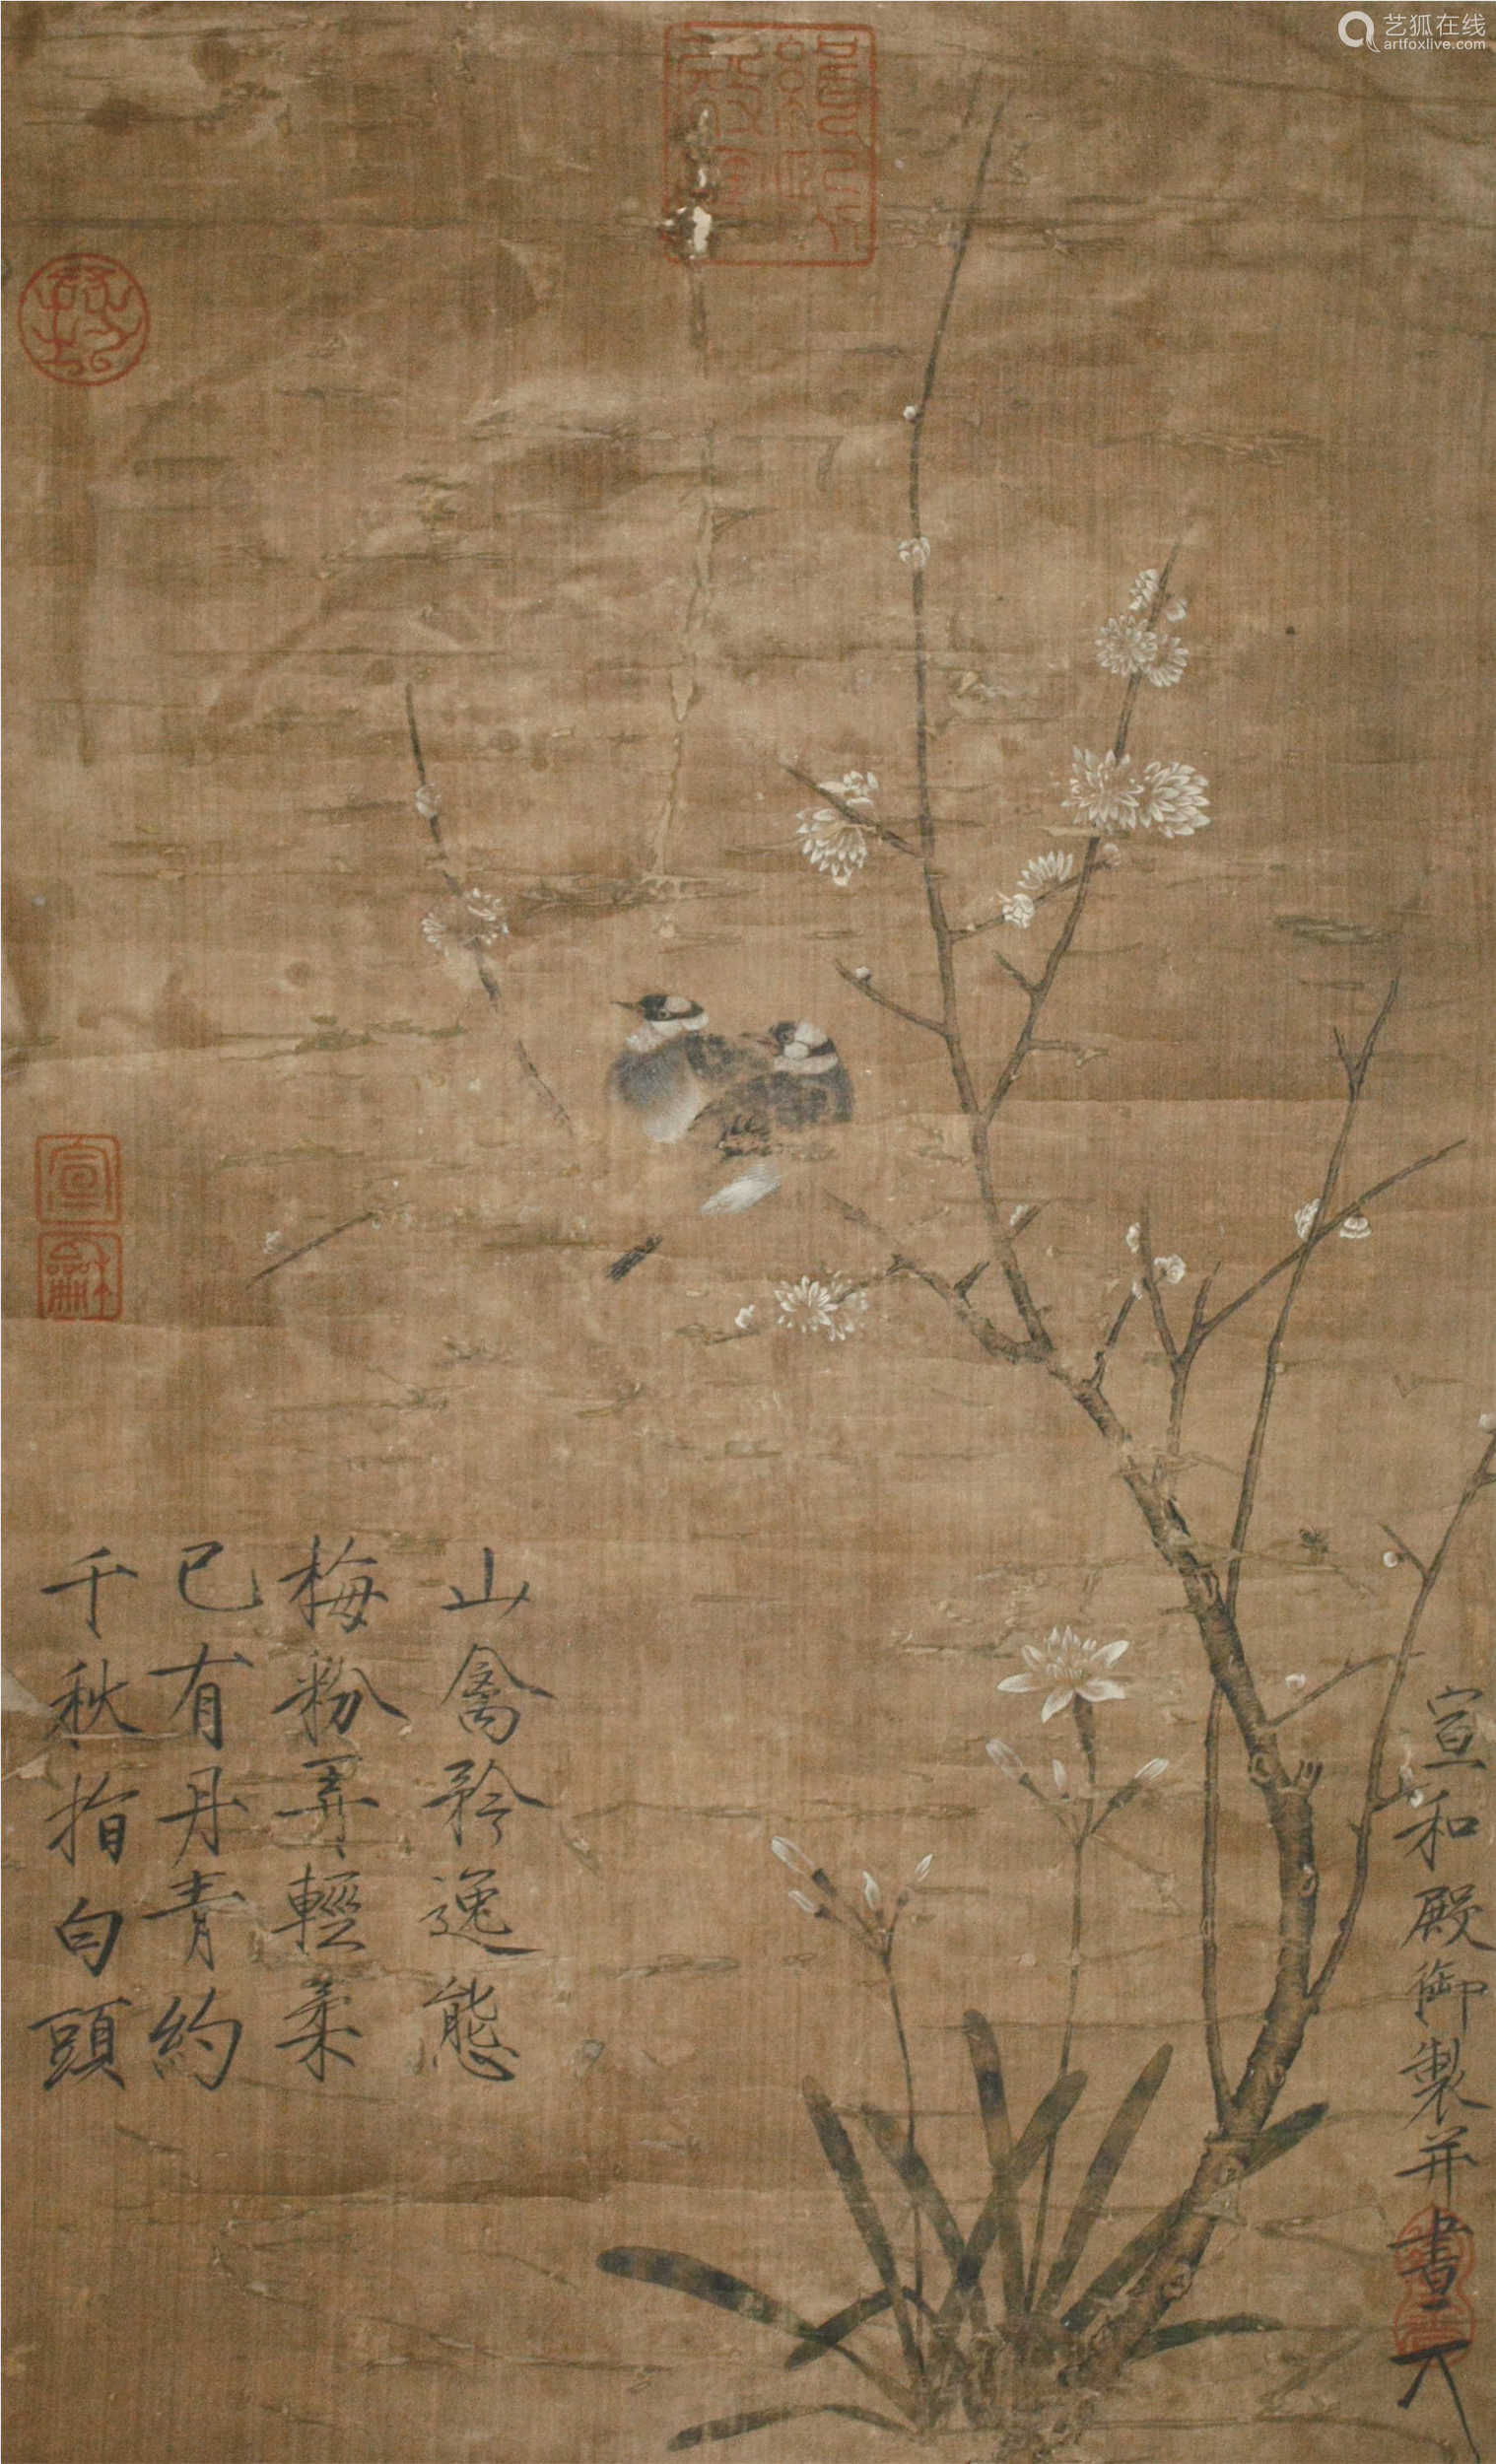 艺狐在线
artfoxlive.com
山禽矜逸態
梅粉弄輕柔
已有丹青約
千秋指白頭
宣和殿御製并書
宣